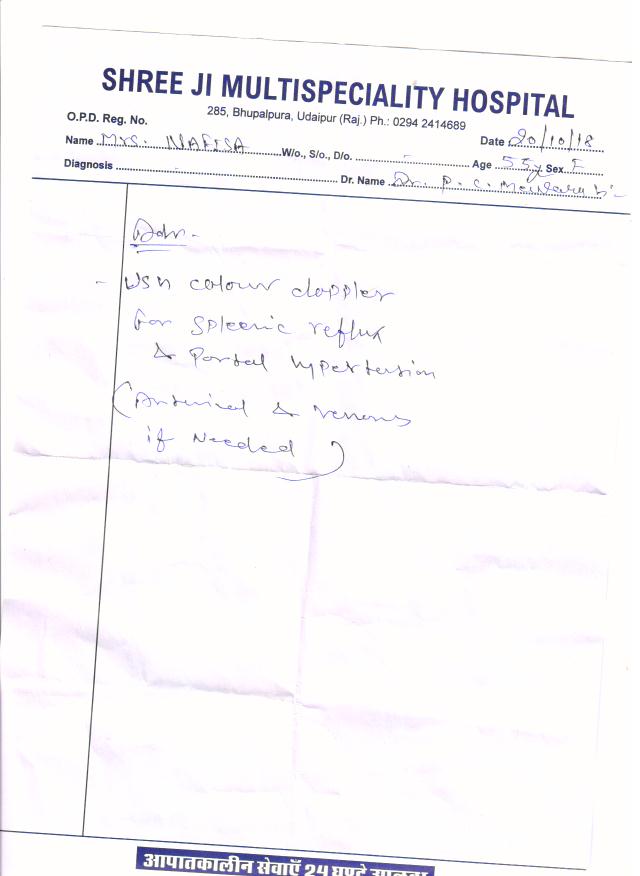 SHREE JI MULTISPECIALITY HOSPITAL
285, Bhupalpura, Udaipur (Raj.) Ph.: 0294 2414689
O.P.D. Reg. No.
Date 20/10/18
Name Mrs. NAFISA W/o, S/o, D/o. - Age 55y Sex F
Diagnosis Dr. Name Dr. P. C.
Adv -
- USG colour doppler
for spleenic reflux
& Portal hypertension
(Arterial & venous
if Needed)
आपातकालीन सेवाएँ 24 घण्टे